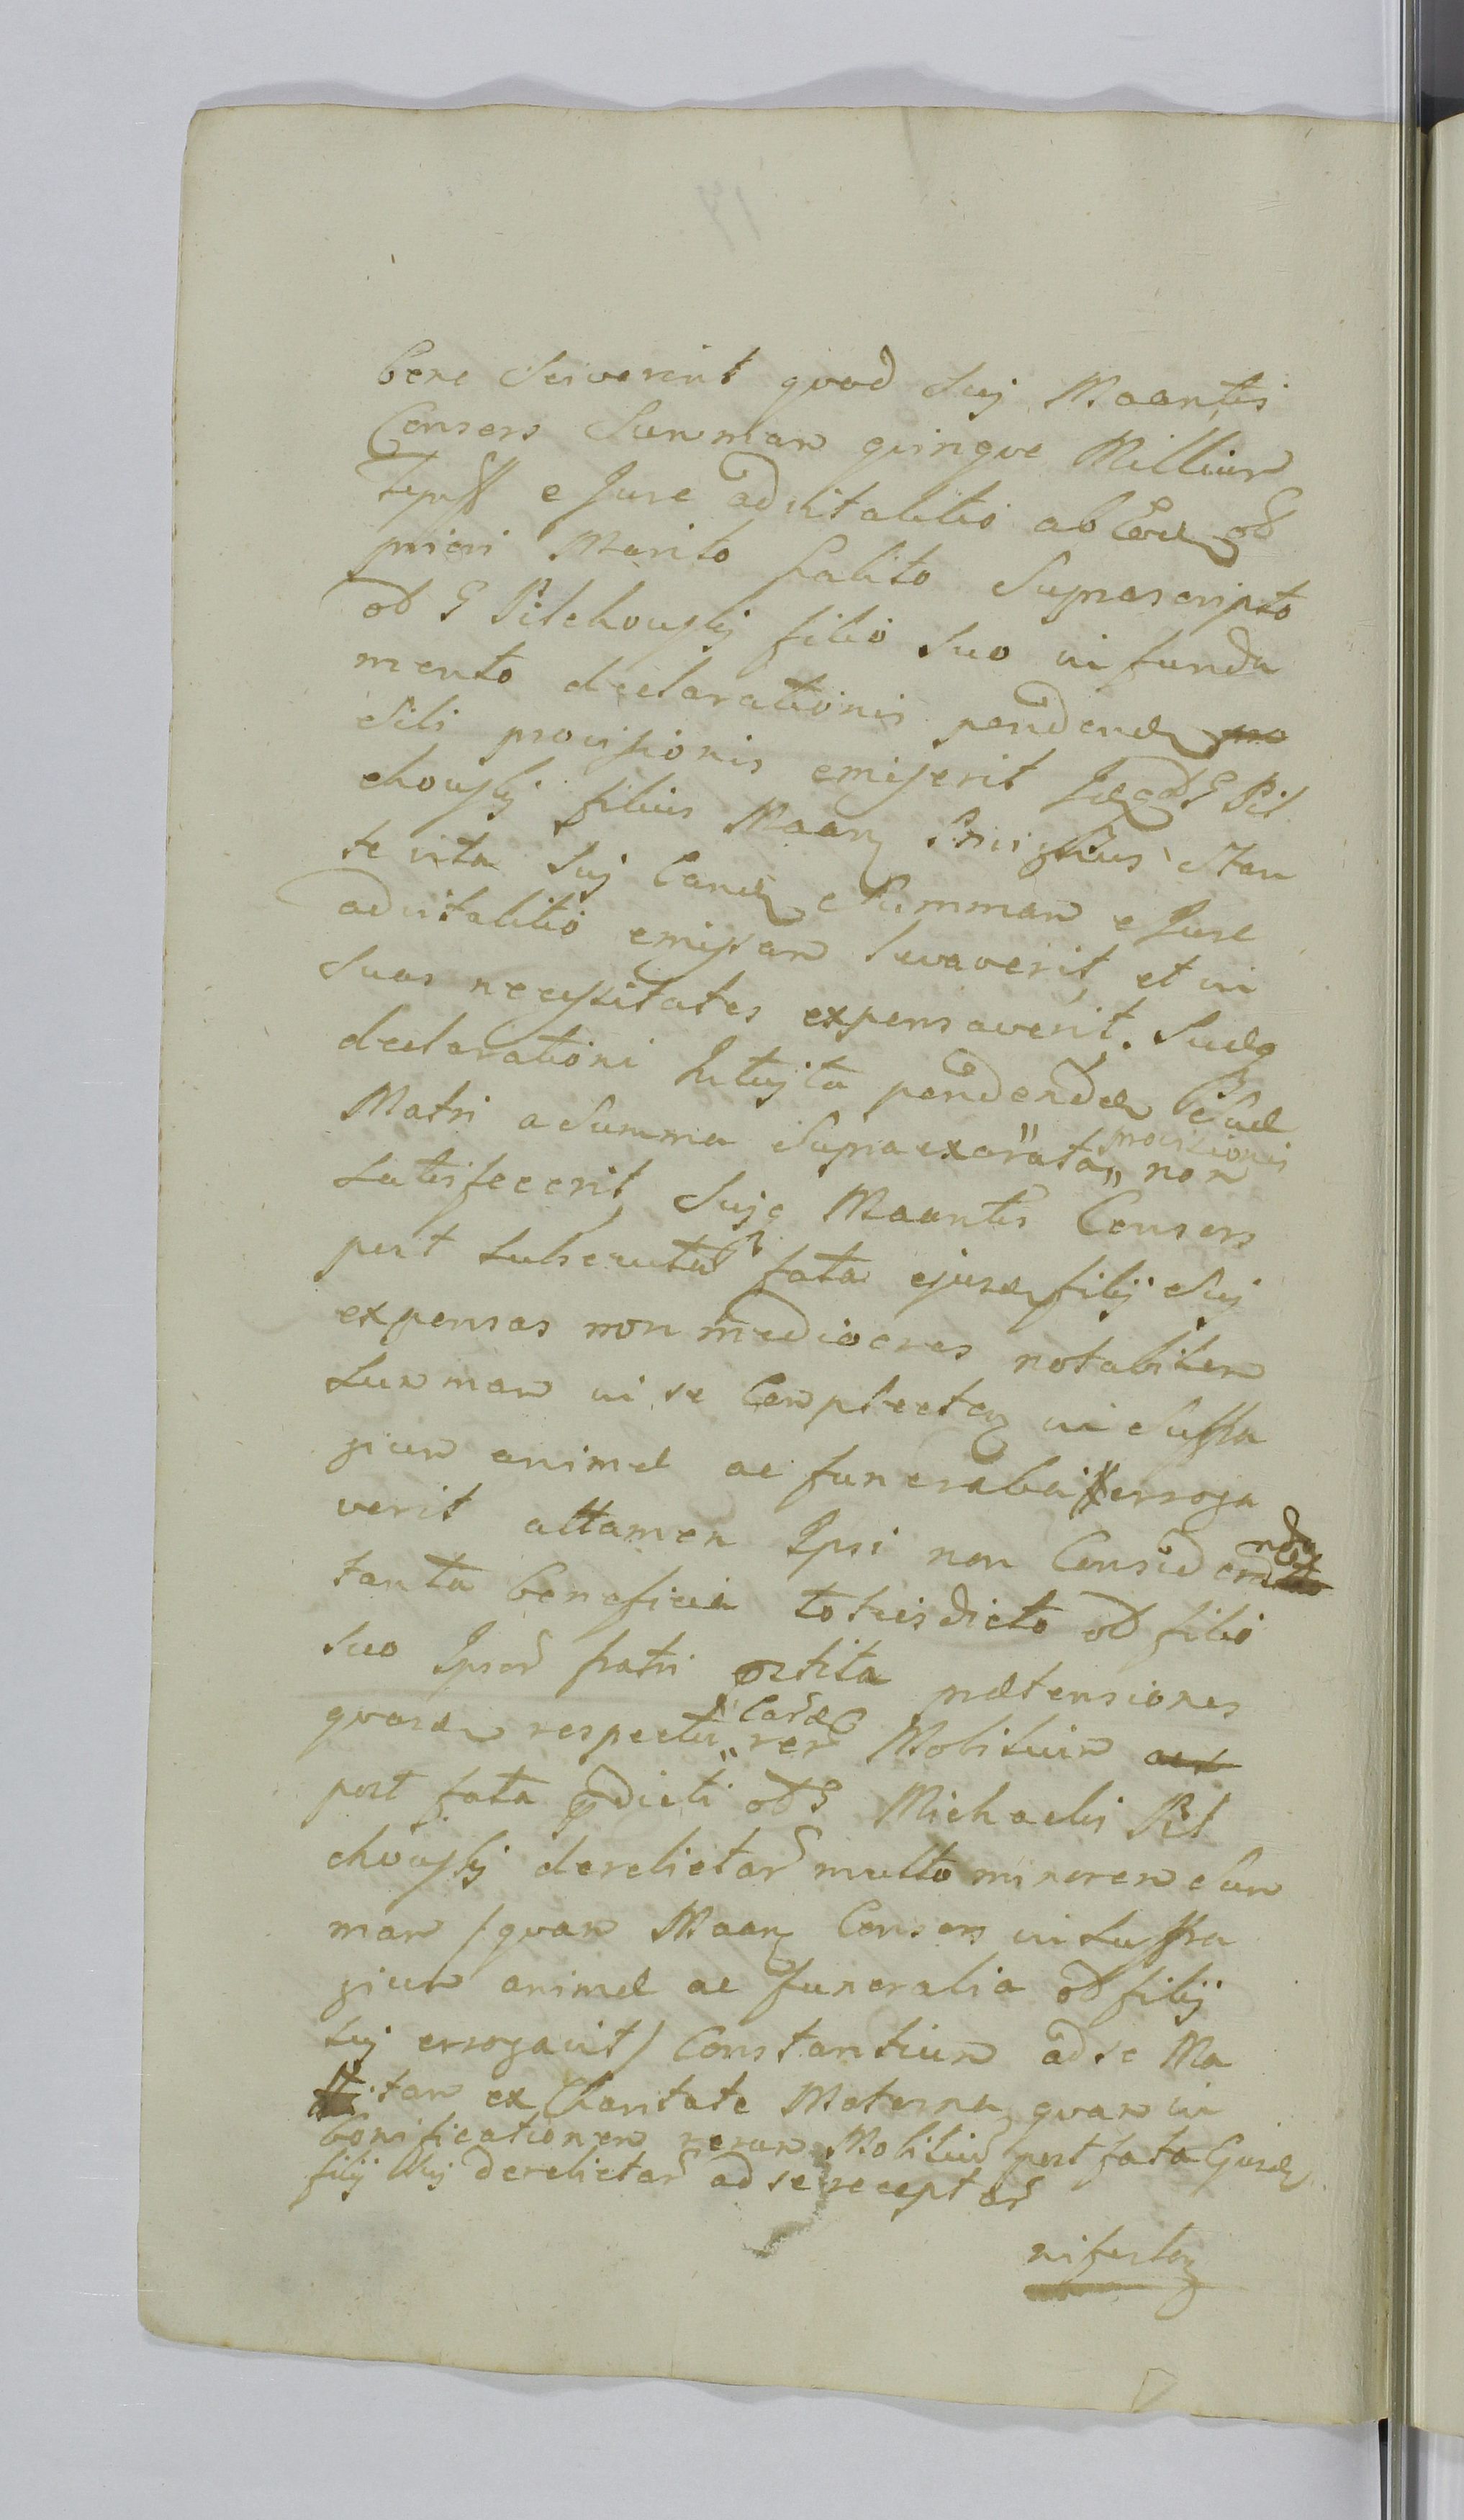 bene sciverint quod suj Maantis
Consors Summam quinque Millium
e Jure advitalitio ab
priori Marito salito suprascripto
od G Pilchowskj filio suo in funda
mento declarationis pendendæ pro
sibi provisionis emiserit G Pil
chowskj filius Maan Privignus stan
te vita suj eand Summam e Jure
advitalitio emissam levaverit, et in
suas necessitates expensaverit. Suæq
declarationi pendendæ suæ
Matri a Summa supraexarata „ provisionis „ non
satisfecerit, Sujq Maantis Consors
post subsecuta fata ejusd filij suj
expensas non mediocres notabilem
Summam in se complecten in suffra
gium animæ ac funeralia erroga
verit attamen Ipsi non Considerandn
tanta beneficia toties dicto od filio
suo Ipsor fratri præstita prætensiones
quasd respectu „ eard „ rer Mobilium act
post fata pdicti od G Michaelis Pil
chowskj derelictar multo minorem Sum
mam / quam Maan Consors in suffra
gium animæ ac funeralia od filij
suj errogavit / Constantium ad se Ma
tam ex Charitate Materna, quam in
bonificationem rerum Mobiliu post fata Ejusd
filij suj derelictar ad se receptar
nifestan